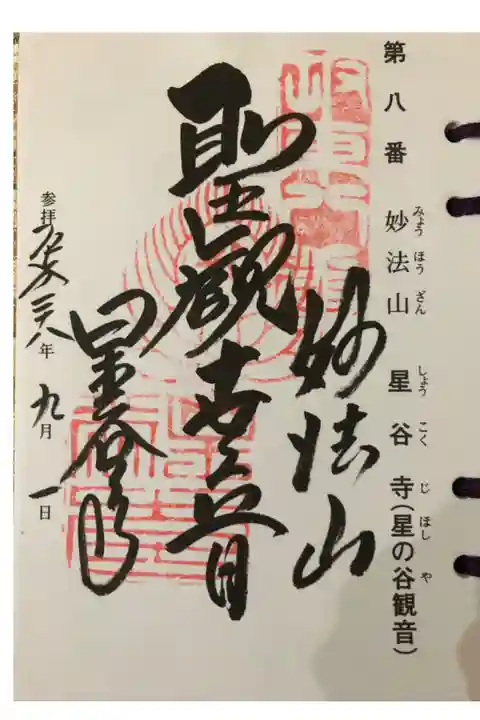 第八番 妙法山 星谷寺(星の谷観音)
みょう ほう ざん しょう こく じ ほし や
妙法山
聖観世音
星谷寺
参拝 平成二八年 九月 一日